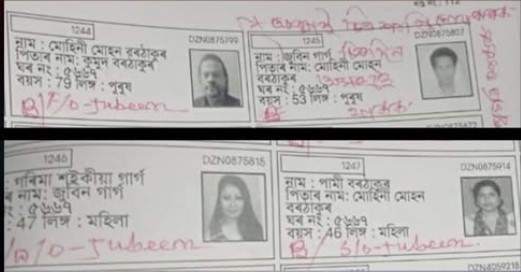 1244
DZN0875799
নাম : মোহিনী মোহন বৰঠাকুৰ
পিতাৰ নাম: কুমুদ বৰঠাকুৰ
ঘৰ নং : ৫৬৬৭
বয়স : 79 লিঙ্গ : পুৰুষ
B/F/o-Jubeen
1245
DZN0875807
নাম : জুবিন গাৰ্গ
পিতাৰ নাম: মোহিনী মোহন
বৰঠাকুৰ
ঘৰ নং : ৫৬৬৭
বয়স : 53 লিঙ্গ : পুৰুষ
1246
DZN0875815
: গৰিমা শইকীয়া গাৰ্গ
ৰ নাম: জুবিন গাৰ্গ
: ৫৬৬৭
: 47 লিঙ্গ : মহিলা
W/O-Jubeen
1247
DZN0875914
নাম : পামী বৰঠাকুৰ
পিতাৰ নাম: মোহিনী মোহন
বৰঠাকুৰ
ঘৰ নং : ৫৬৬৭
বয়স : 46 লিঙ্গ : মহিলা
B/ S/o-Jubeen.
DZN4059218